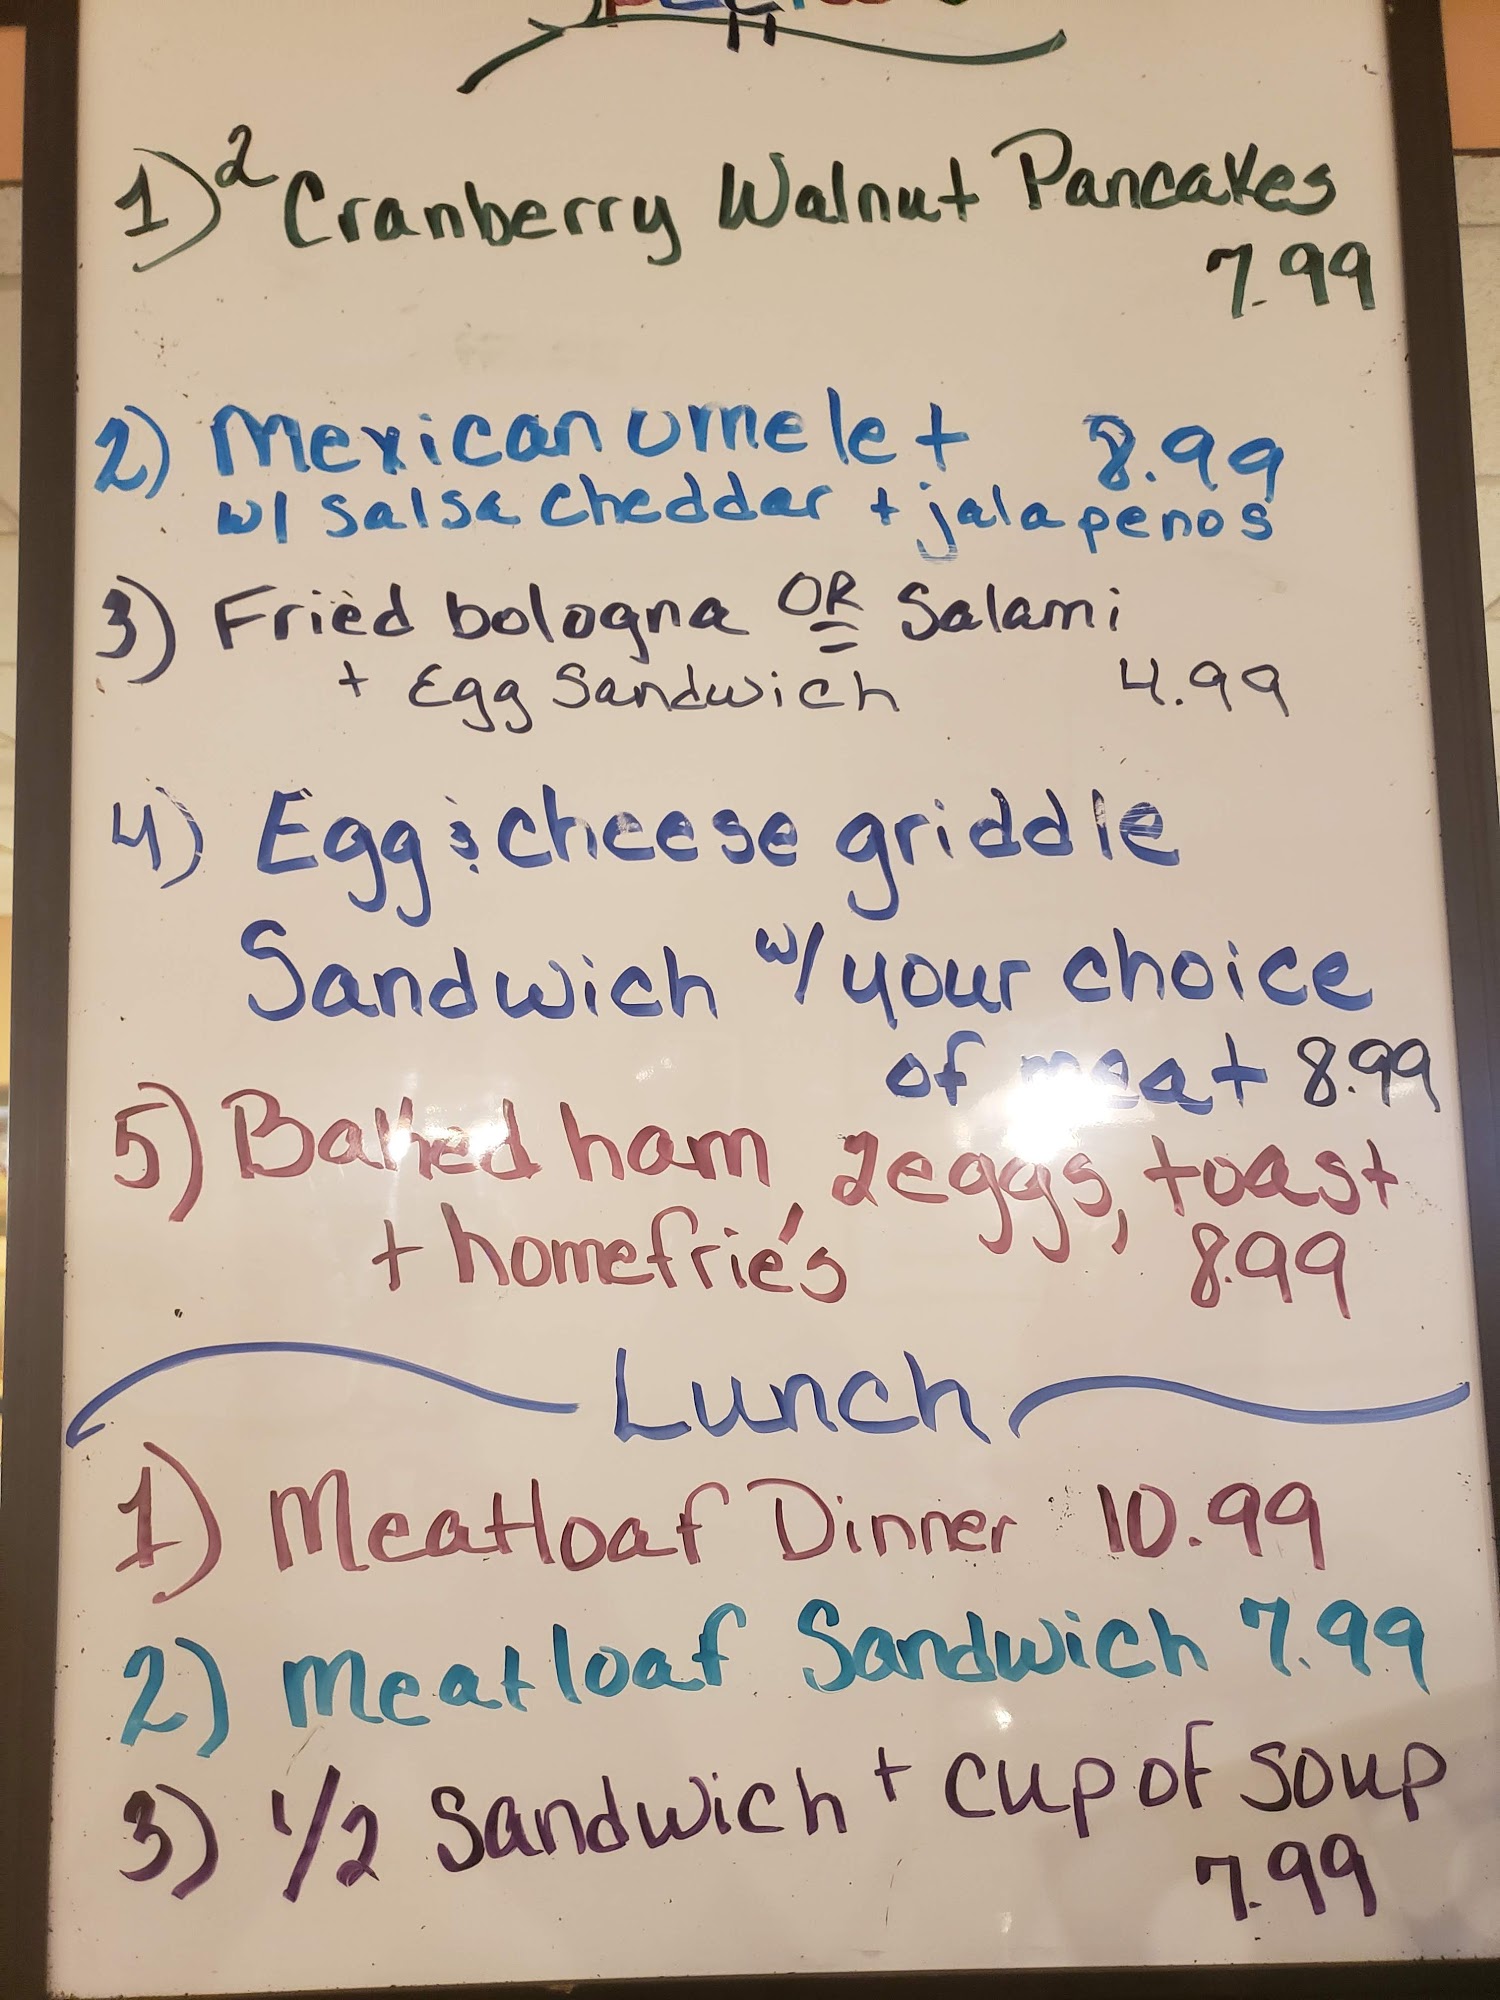 1) 2 Cranberry Walnut Pancakes
7.99
2) Mexican omelet 8.99
w/ salsa cheddar + jalapenos
3) Fried bologna OR Salami
+ Egg Sandwich 4.99
4) Egg & cheese griddle
Sandwich w/ your choice
of meat 8.99
5) Baked ham, 2 eggs, toast
+ homefrie's 8.99
Lunch
1) Meatloaf Dinner 10.99
2) Meatloaf Sandwich 7.99
3) 1/2 Sandwich + cup of soup
7.99